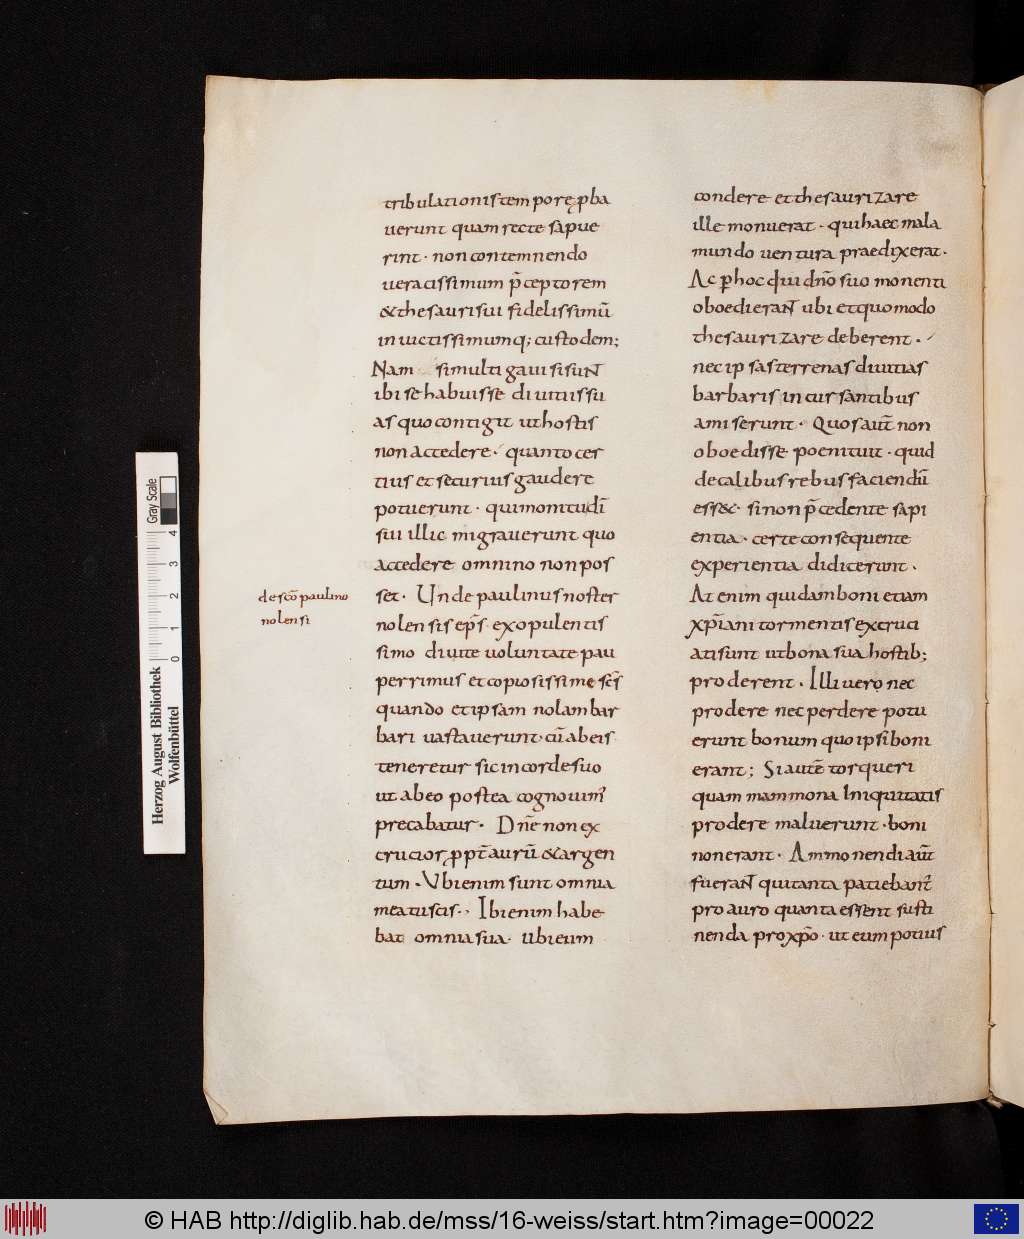 tribulationis tempore p̱ba
uerunt quam recte sapue
rint · non contemnendo
ueracissimum p̄ceptorem
& thesauri sui fidelissimū
inuictissimumq; custodem;
Nam si multi gauisi sunt
ibi se habuisse diuitias su
as quo contigit ut hostis
non accedere · quanto cer
tius et securius gaudere
potuerunt · qui monitu dī
sui illic migrauerunt quo
accedere omnino non pos
set · Unde paulinus noster
de sc̄o paulino
nolensi
nolensis ep̄s · ex opulentis
simo diuite uoluntate pau
perrimus et copiosissime sc̄s
quando et ipsam nolam bar
bari uastauerunt · cū ab eis
teneretur sic in corde suo
ut ab eo postea cognouim'
precabatur · Dn̄e non ex
crucior ppt̄ aurū & argen
tum · Vbi enim sunt omnia
mea tu scis · Ibi enim habe
bat omnia sua · ubi eum
condere et thesaurizare
ille monuerat · qui haec mala
mundo uentura praedixerat ·
Ac p̱ hoc qui dn̄o suo monenti
oboedierant ubi et quomodo
thesaurizare deberent ·
nec ipsas terrenas diuitias
barbaris incursantibus
amiserunt · Quos aut̄ non
oboedisse poenituit · quid
de talibus rebus faciendū
ess& · si non p̄cedente sapi
entia · certe consequente
experientia didicerunt ·
At enim quidam boni etiam
xp̄iani tormentis excruci
ati sunt ut bona sua hostib;
proderent · Illi uero nec
prodere nec perdere potu
erunt bonum quo ipsi boni
erant; Si autē torqueri
quam mammona iniquitatis
prodere maluerunt · boni
non erant · Ammonendi aut̄
fuerant qui tanta patiebant'
pro auro quanta essent susti
nenda pro xp̄o · ut eum potius
Gray Scale
4
3
2
1
0
Herzog August Bibliothek
Wolfenbüttel
© HAB http://diglib.hab.de/mss/16-weiss/start.htm?image=00022